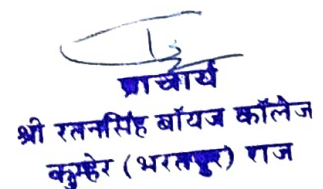 प्राचार्य
श्री रतनसिंह बॉयज कॉलेज
कुम्हेर (भरतपुर) राज